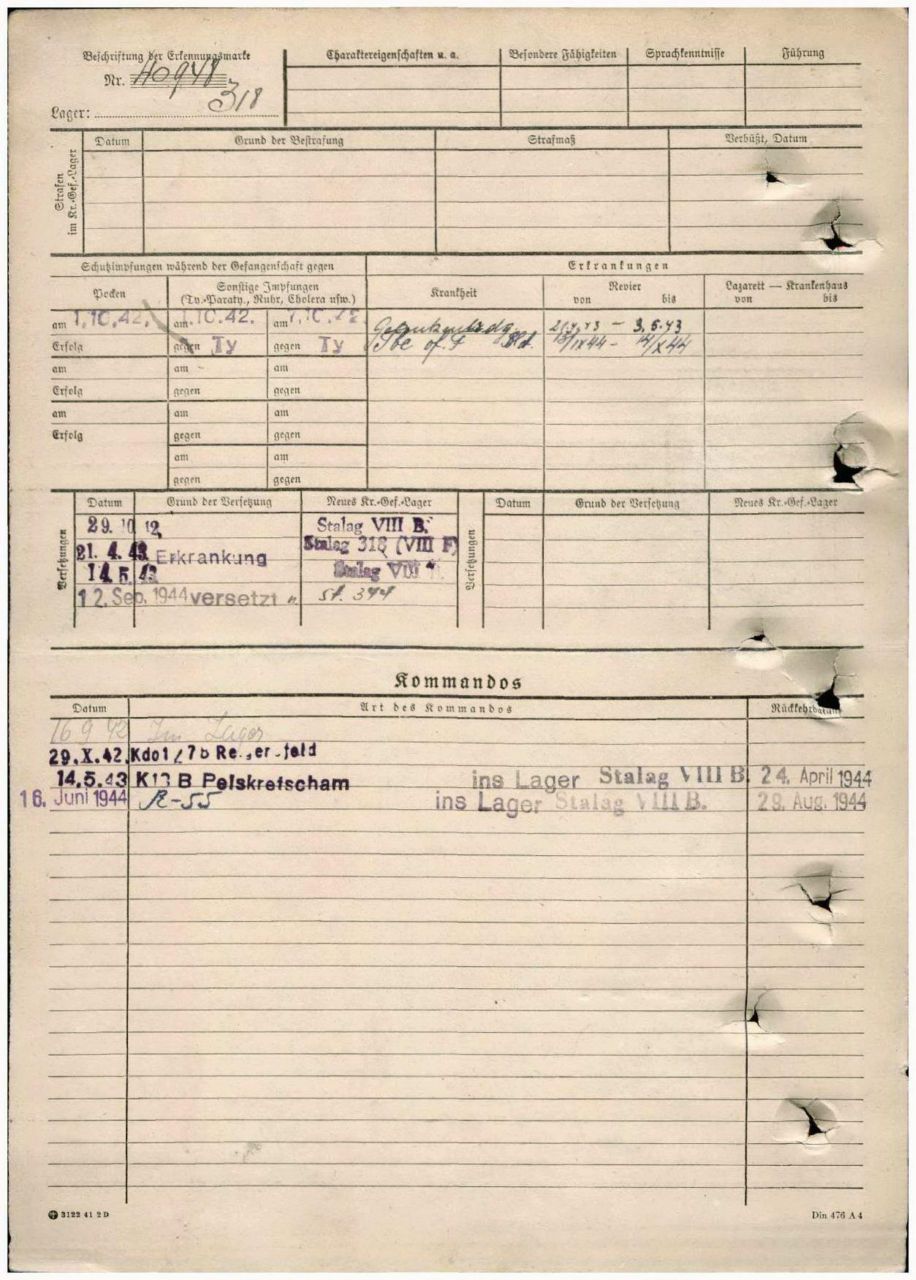 Beschriftung der Erkennungsmarke
Nr. 40948
318
Lager:
Charaktereigenschaften u. a.
Besondere Fähigkeiten
Sprachkenntnisse
Führung
Strafen im Kr.-Gef.-Lager
Datum
Grund der Bestrafung
Strafmaß
Verbüßt, Datum
Schutzimpfungen während der Gefangenschaft gegen
Erkrankungen
Pocken
Sonstige Impfungen
(Ty.-Paraty., Ruhr, Cholera usw.)
Krankheit
Revier
von bis
Lazarett — Krankenhaus
von bis
am 1.10.42. am 1.10.42. am 7.10.42.
Erfolg gegen Ty gegen Ty
3.5.43
Tbc
/IX 44 - /X 44
am am am
Erfolg gegen gegen
am am am
Erfolg gegen gegen
am am
gegen gegen
Versetzungen
Datum Grund der Versetzung Neues Kr.-Gef.-Lager
29. 10 42. Stalag VIII B.
21. 4. 43 Erkrankung Stalag 318 (VIII F)
14. 5. 43 Stalag VIII
12. Sep. 1944 versetzt n. St. 344
Versetzungen
Datum Grund der Versetzung Neues Kr.-Gef.-Lager
Kommandos
Datum Art des Kommandos Rückkehrdatum
16 9 42 Im Lager
29.X.42. Kdo
14.5.43 B Peiskretscham ins Lager Stalag VIII B 24. April 1944
16. Juni 1944 R-55 ins Lager Stalag VIII B. 29. Aug. 1944
3122 41 2 D
Din 476 A 4